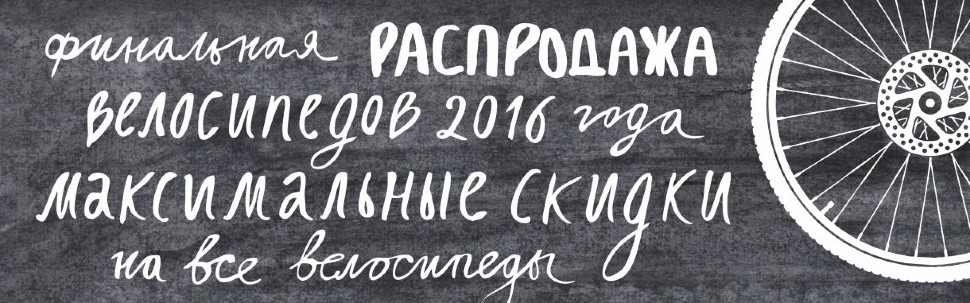 финальная РАСПРОДАЖА
велосипедов 2016 года
максимальные скидки
на все велосипеды